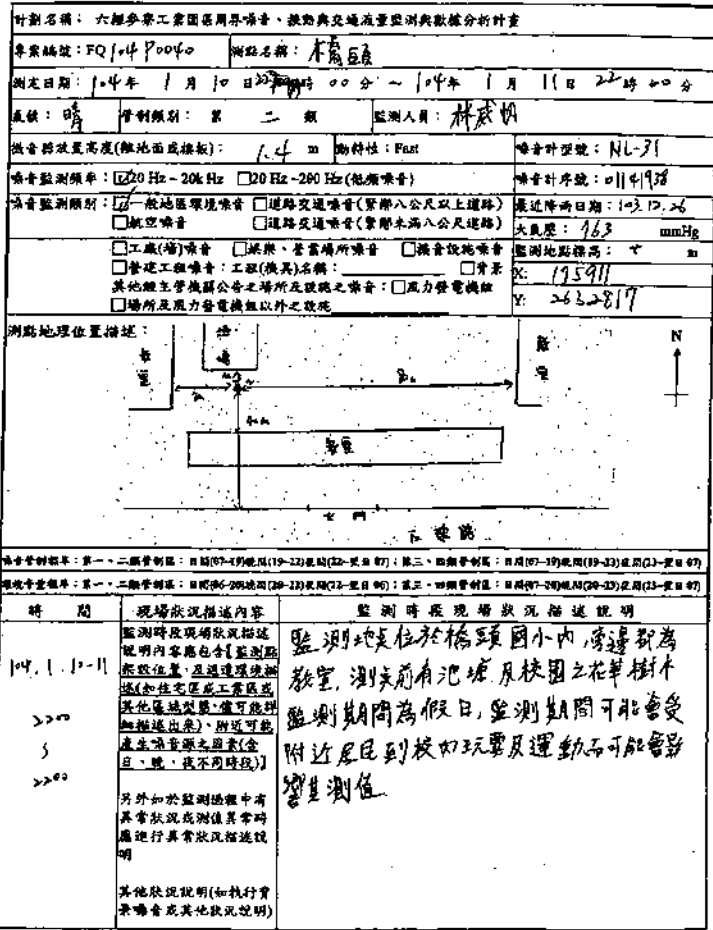 計劃名稱: 六輕參寮工業園區周界噪音、振動與交通流量監測與數據分析計畫
專案編號:FQ104P0040 測點名稱:橋頭
測定日期:104年 1月 10日 時 00分 ~ 104年 1月 11日 22時 00分
氣候:晴 管制類別: 第 二 類 監測人員:林威帆
微音器放置高度(離地面或樓板): 1.4 m 動特性:Fast 噪音計型號:NL-31
噪音監測頻率:☑20 Hz ~ 20k Hz □20 Hz ~200 Hz(低頻噪音) 噪音計序號:01141938
噪音監測類別:☑一般地區環境噪音 □道路交通噪音(緊鄰八公尺以上道路) 最近降雨日期:103.12.26
□航空噪音 □道路交通噪音(緊鄰未滿八公尺道路) 大氣壓:763 mmHg
□工廠(場)噪音 □娛樂、營業場所噪音 □擴音設施噪音 監測地點標高: m
□營建工程噪音:工程(機具)名稱: □背景 X: 175911
其他經主管機關公告之場所及設施之噪音:□風力發電機組 Y: 2632817
□場所及風力發電機組以外之設施
測點地理位置描述:
池塘
教室
教室
N
教室
大門
噪音管制標準:第一、二類管制區:日間(07~19)晚間(19~22)夜間(22~翌日07);第三、四類管制區:日間(07~19)晚間(19~23)夜間(23~翌日07)
環境音量標準:第一、二類管制區:日間(06~20)晚間(20~22)夜間(22~翌日06);第三、四類管制區:日間(07~20)晚間(20~23)夜間(23~翌日07)
時 間 現場狀況描述內容 監測時段現場狀況描述說明
104.1.10-11
2200
~
2200
監測時段現場狀況描述
說明內容應包含【監測點
架設位置、及週遭環境描
述(如住宅區或工業區或
其他區域型態,儘可能詳
細描述出來)、附近可能
產生噪音源之因素(含
日、晚、夜不同時段)】
另外如於監測過程中有
異常狀況或測值異常時
應進行異常狀況描述說
明
其他狀況說明(如執行背
景噪音或其他狀況說明)
監測地點位於橋頭國小內,旁邊都為
教室,測點前有池塘及校園之花草樹木
監測期間為假日,監測期間可能會受
附近居民到校如玩耍及運動而可能會影
響其測值